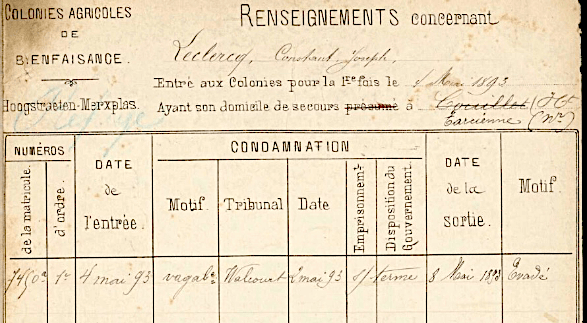 COLONIES AGRICOLES
DE
BIENFAISANCE.
Hoogstraeten-Merxplas.
RENSEIGNEMENTS concernant
Leclercq, Constant Joseph,
Entré aux Colonies pour la 1re fois le 4 Mai 1893
Ayant son domicile de secours présumé à Couillet (Ht
Farcienne (Nr)
NUMÉROS
de la matricule.
d'ordre.
DATE
de
l'entrée.
CONDAMNATION
Motif.
Tribunal
Date
Emprisonnemt
Disposition du
Gouvernement.
DATE
de la
sortie.
Motif.
7450a 1r 4 mai 93 vagabe Walcourt 2 mai 93 s/ terme 8 Mai 1893 Evadé